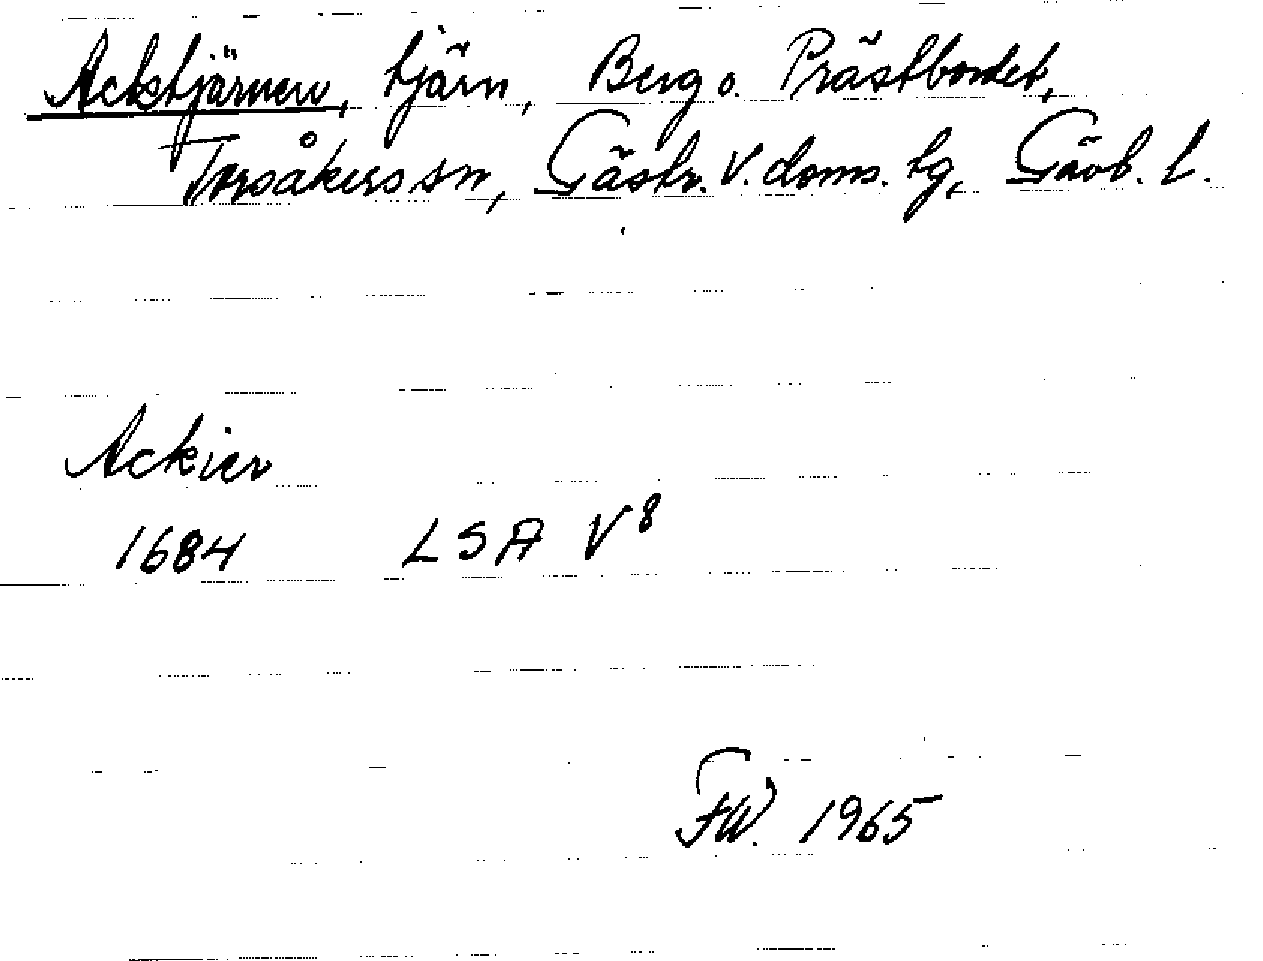 Ackstjärnen, tjärn, Berg o. Prästbordet,
Torsåkers sn, Gästr. V. doms. tg, Gävb. l.
Ackier
1684 LSA V⁸
FW. 1965